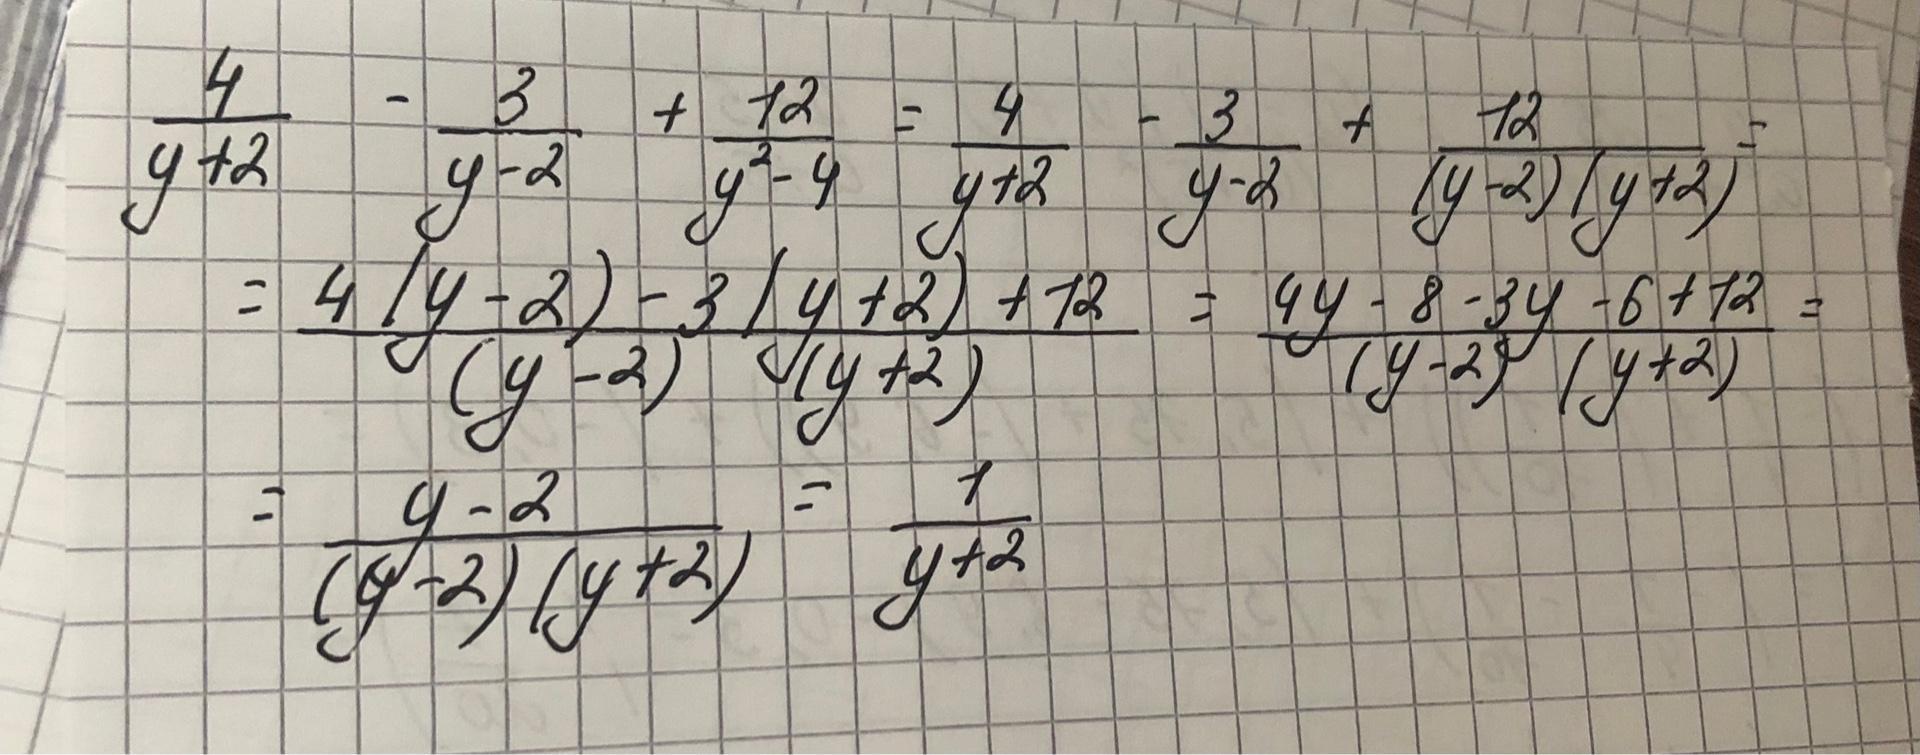 4/(y+2) - 3/(y-2) + 12/(y²-4) = 4/(y+2) - 3/(y-2) + 12/((y-2)(y+2)) =
= (4(y-2)-3(y+2)+12)/((y-2)(y+2)) = (4y-8-3y-6+12)/((y-2)(y+2)) =
= (y-2)/((y-2)(y+2)) = 1/(y+2)